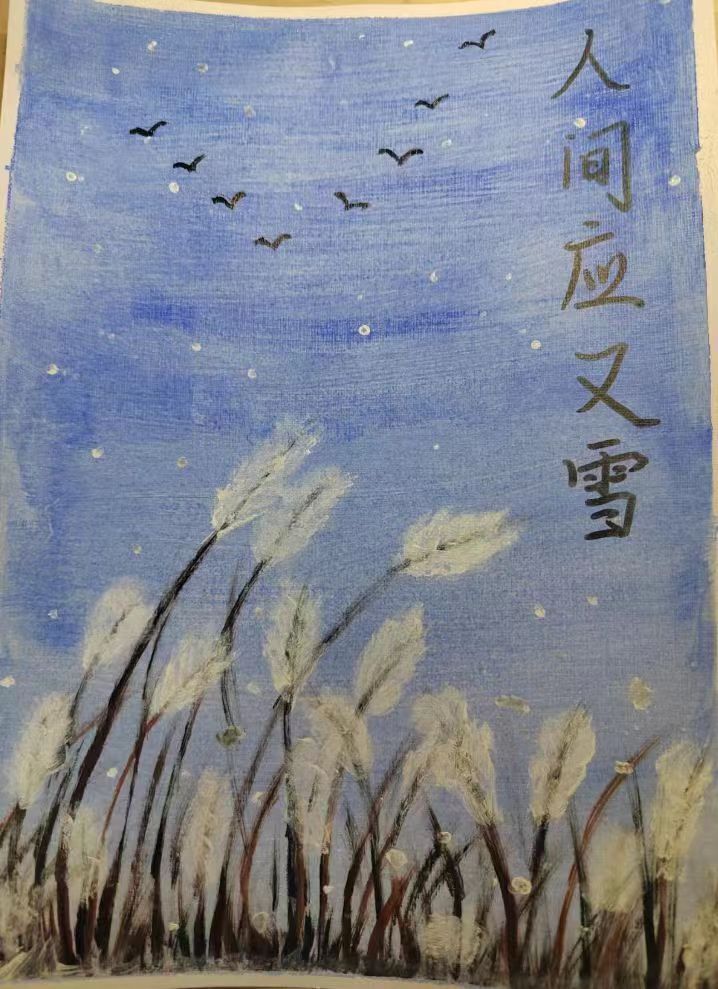 人间应又雪